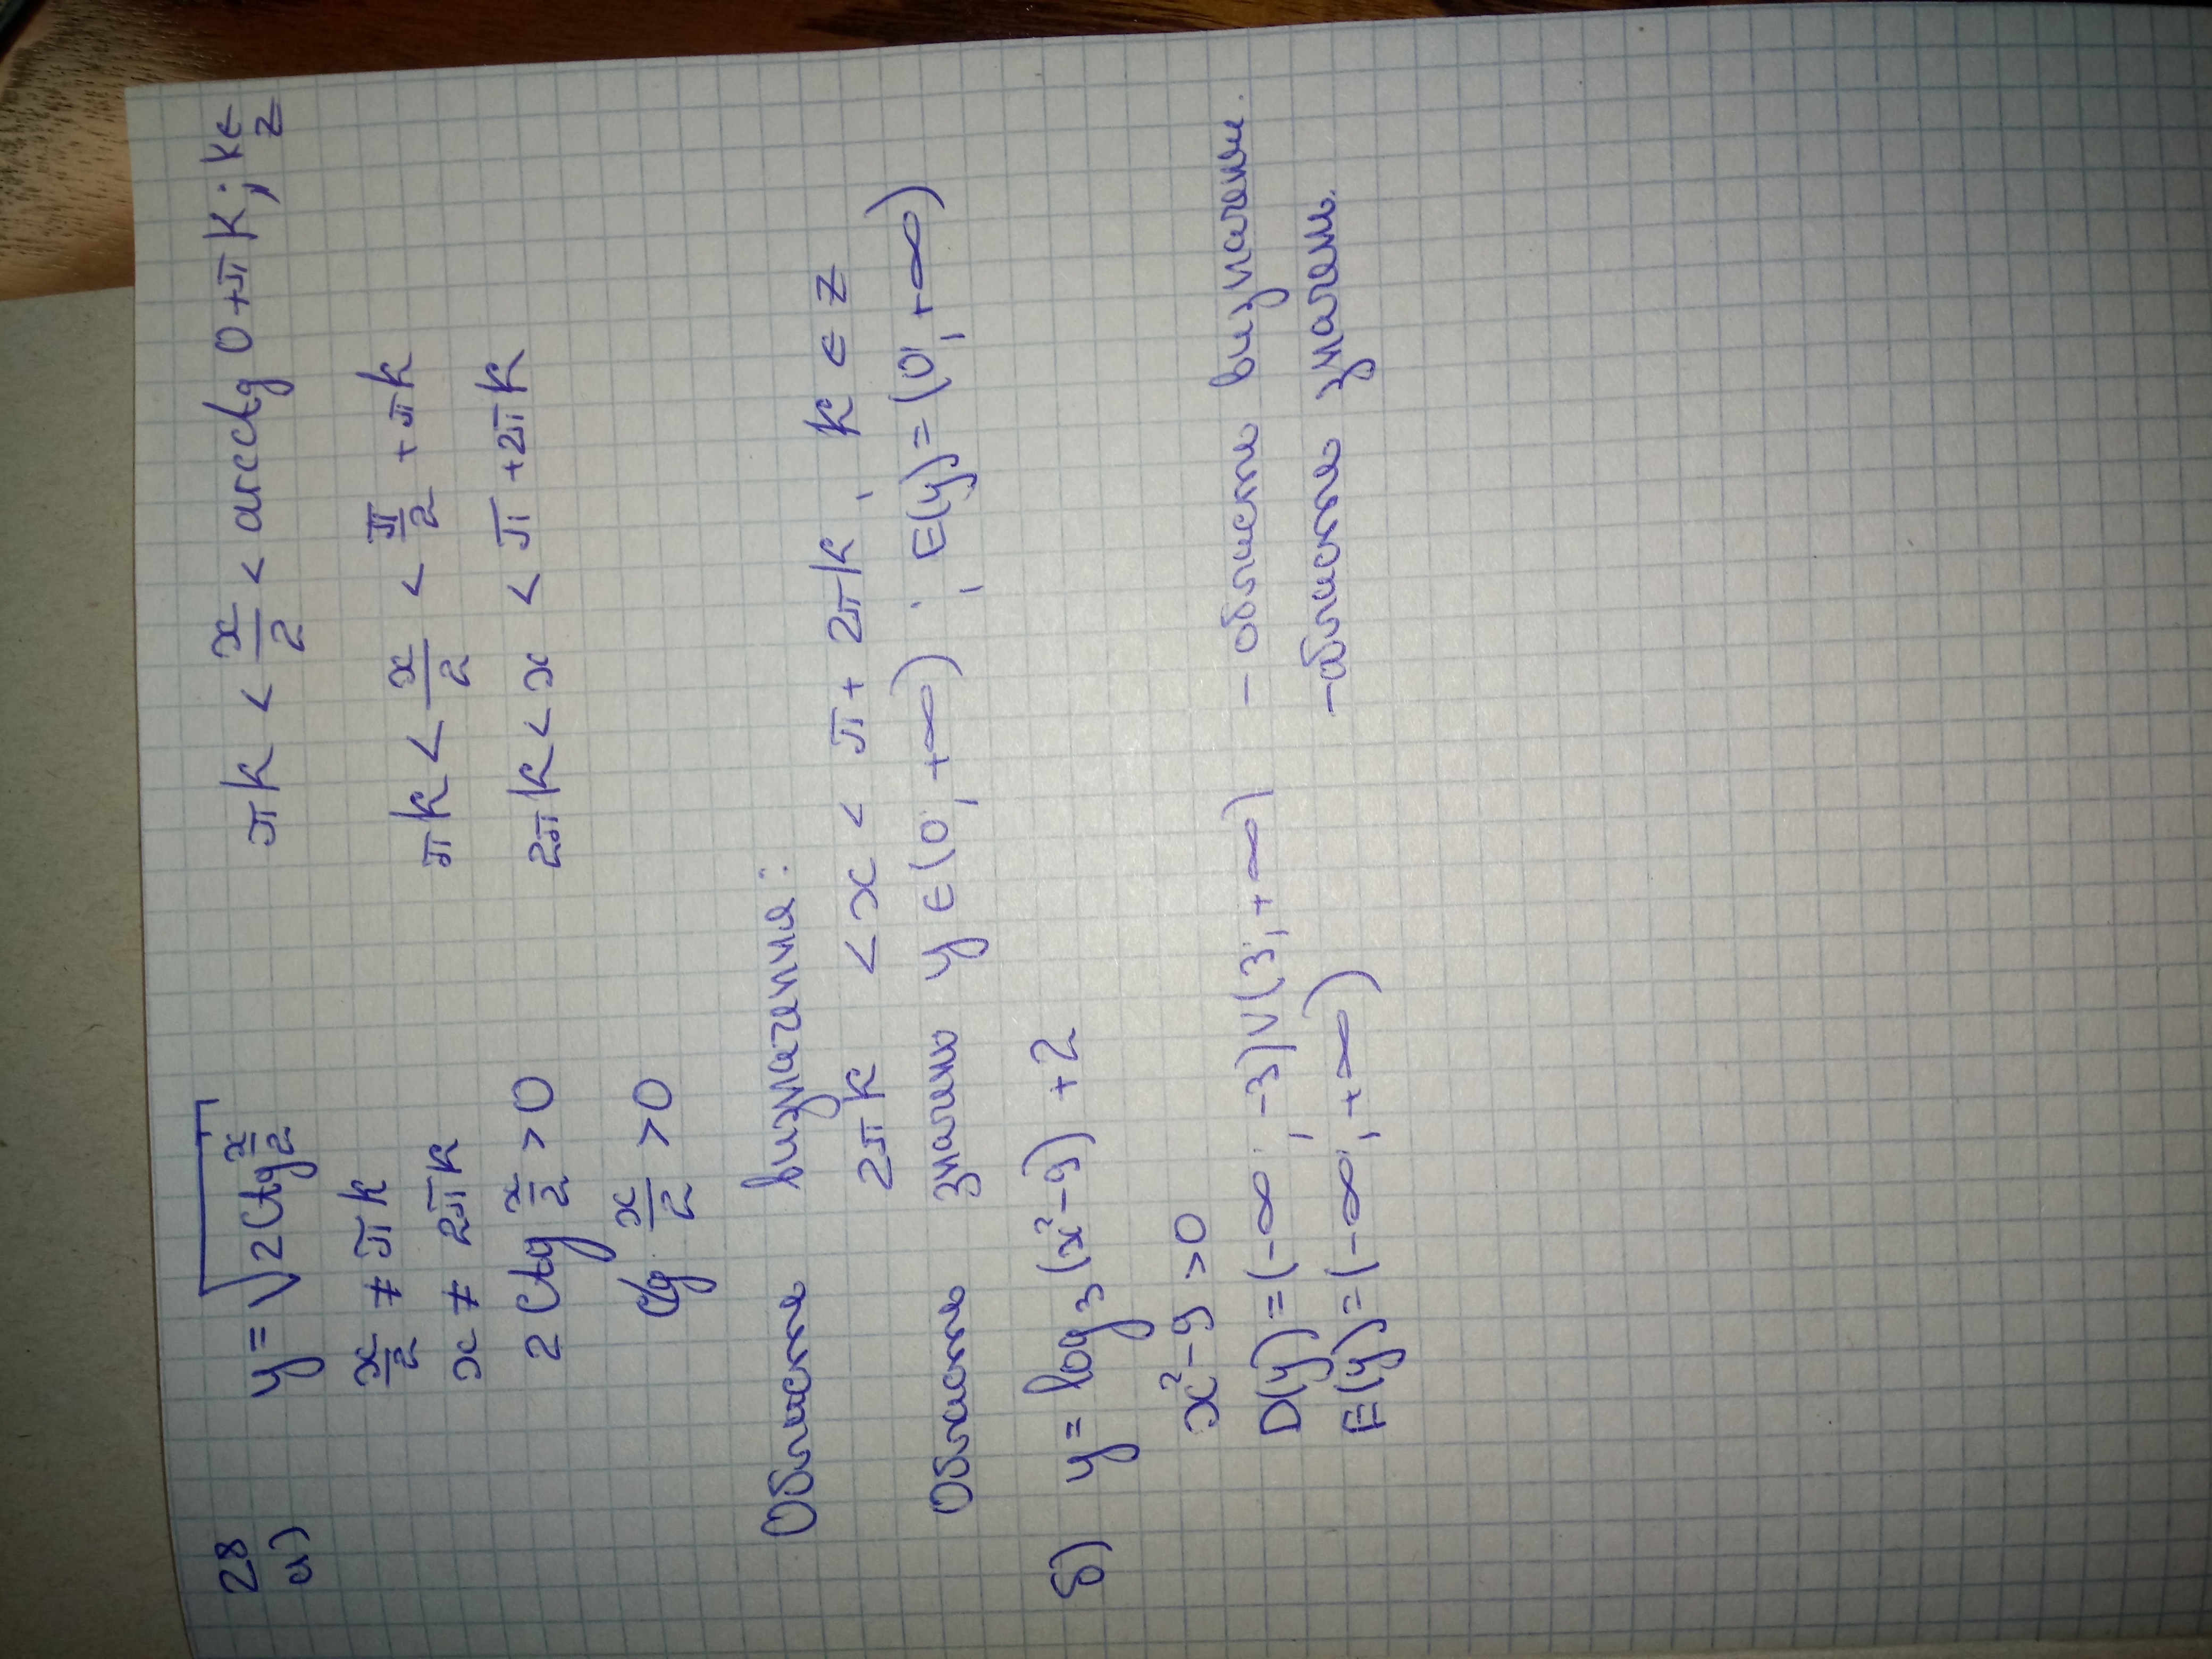 28
а) y = √(2ctg x/2)
x/2 ≠ πk
x ≠ 2πk
2 ctg x/2 > 0
ctg x/2 > 0
πk < x/2 < arcctg 0 + πk; k ∈ Z
πk < x/2 < π/2 + πk
2πk < x < π + 2πk
Область визначення:
2πk < x < π + 2πk, k ∈ Z
Область значень y ∈ (0; +∞); E(y) = (0; +∞)
б) y = log₃(x² - 9) + 2
x² - 9 > 0
D(y) = (-∞; -3) ∪ (3; +∞) - область визначен.
E(y) = (-∞; +∞) - область значень.